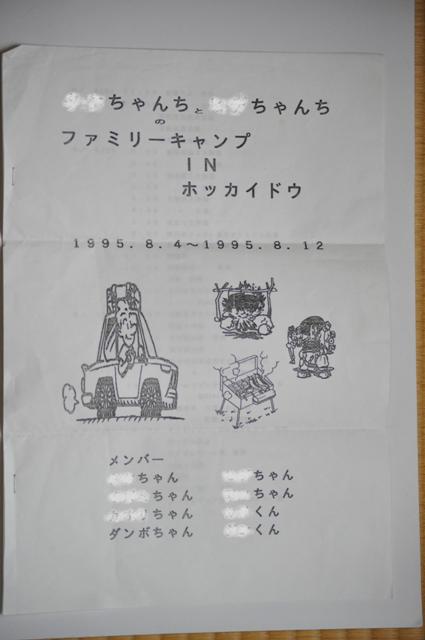 ちゃんちとちゃんち
の
ファミリーキャンプ
IN
ホッカイドウ
1995.8.4～1995.8.12
メンバー
ちゃん ちゃん
ちゃん ちゃん
ちゃん くん
ダンボちゃん くん